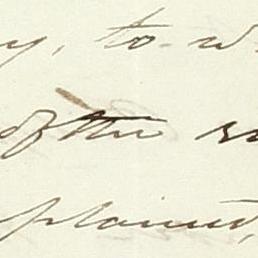 y, to w
of the
plained,